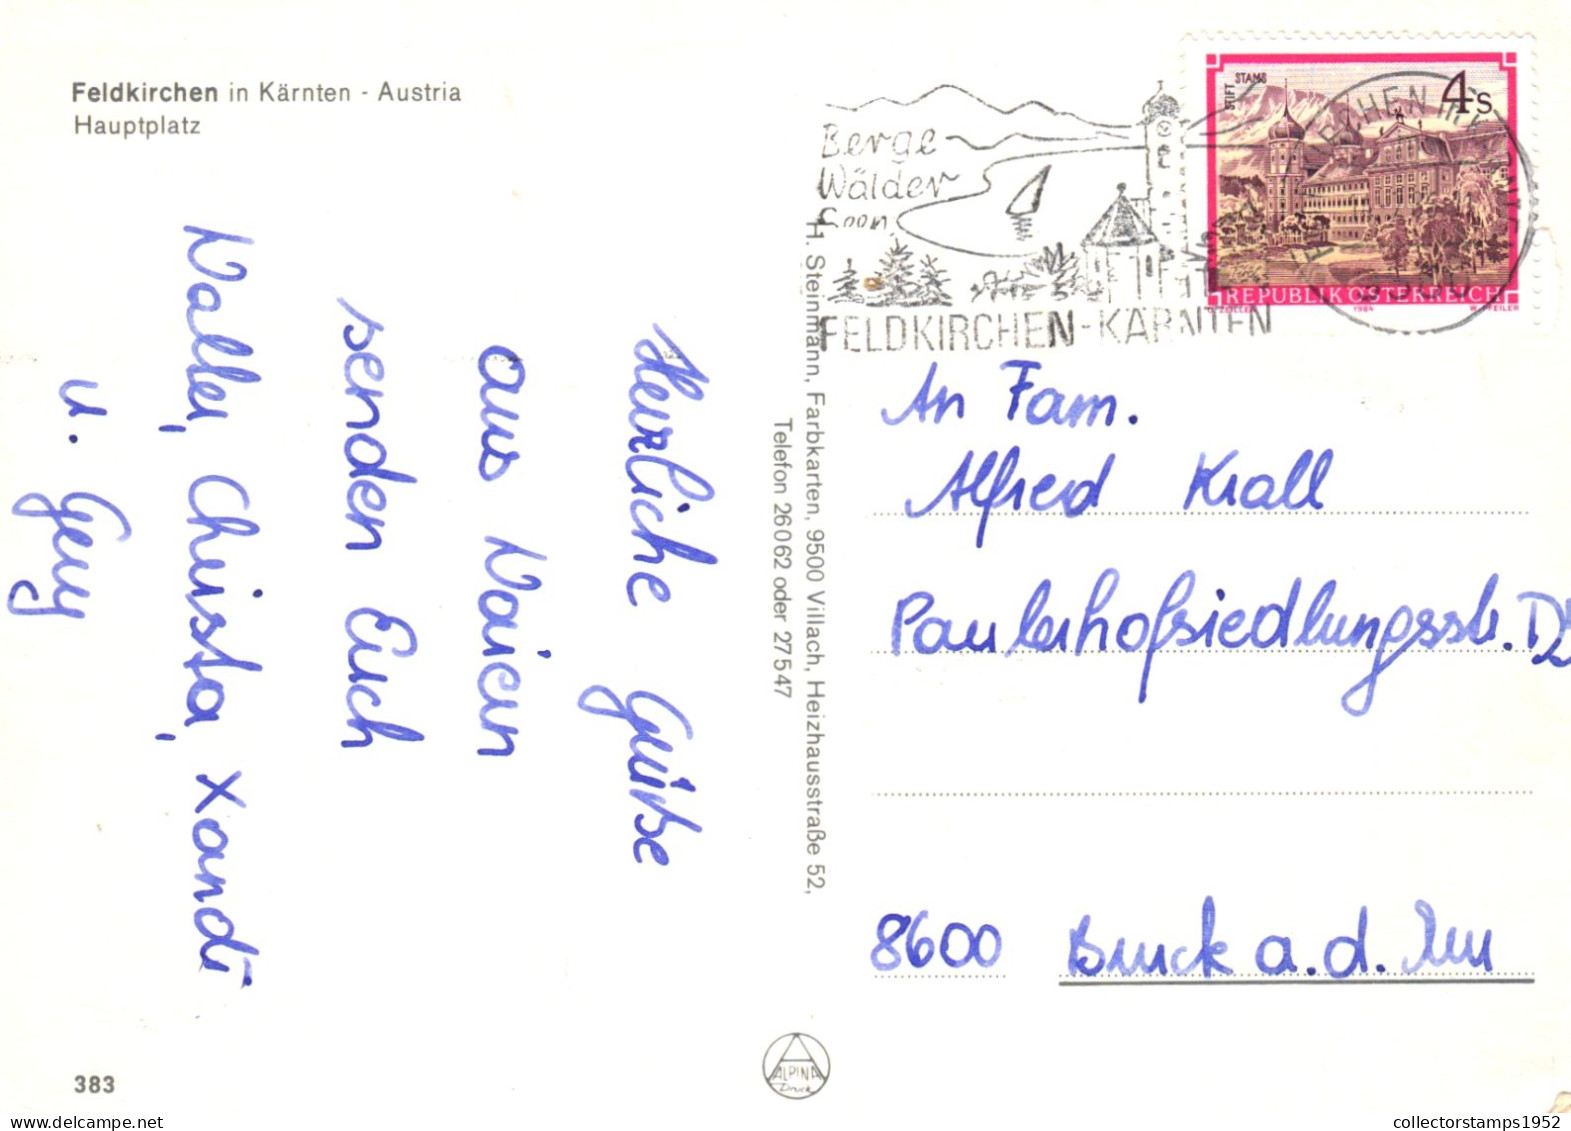 Feldkirchen in Kärnten - Austria
Hauptplatz
Herzliche Grüße
aus
senden Euch
Walter, Christa, Xandi
u.
H. Steinmann, Farbkarten, 9500 Villach, Heizhausstraße 52,
Telefon 26062 oder 27547
Berge
Wälder
Seen
FELDKIRCHEN-KÄRNTEN
STIFT STAMS
4 S
REPUBLIK ÖSTERREICH
1984 W. PFEILER
An Fam.
Alfred Krall
Paulahofsiedlungsstr.
8600 Bruck a. d. Mur
383
ALPINA
Druck
collectorstamps1952